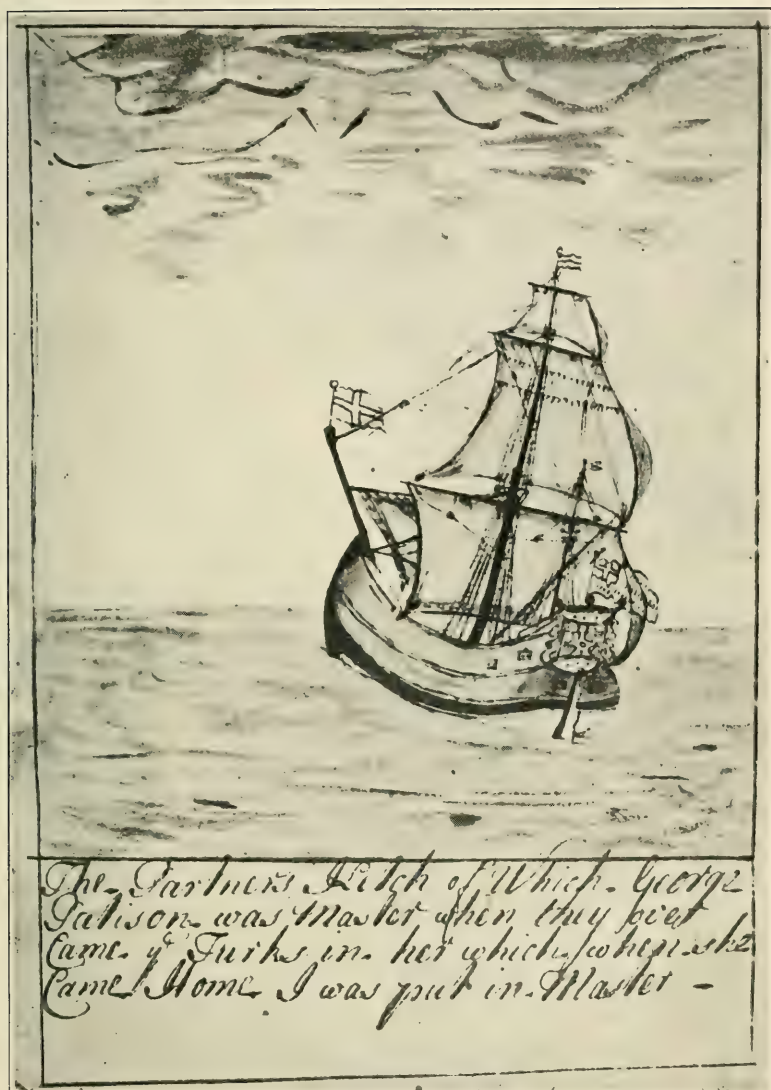 The Partners Ketch of Which George
Patison was Master when they over
Came ye Turks in her which when she
Came Home I was put in Master -